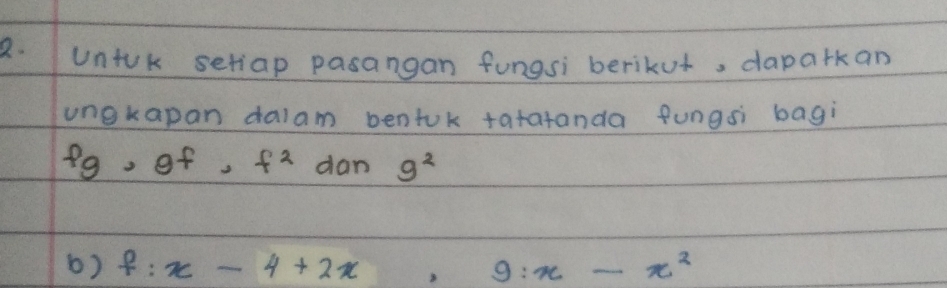 2. Untuk setiap pasangan fungsi berikut, dapatkan
ungkapan dalam bentuk tatatanda fungsi bagi
fg, gf, f² dan g²
b) f : x – 4 + 2x , g : x – x²